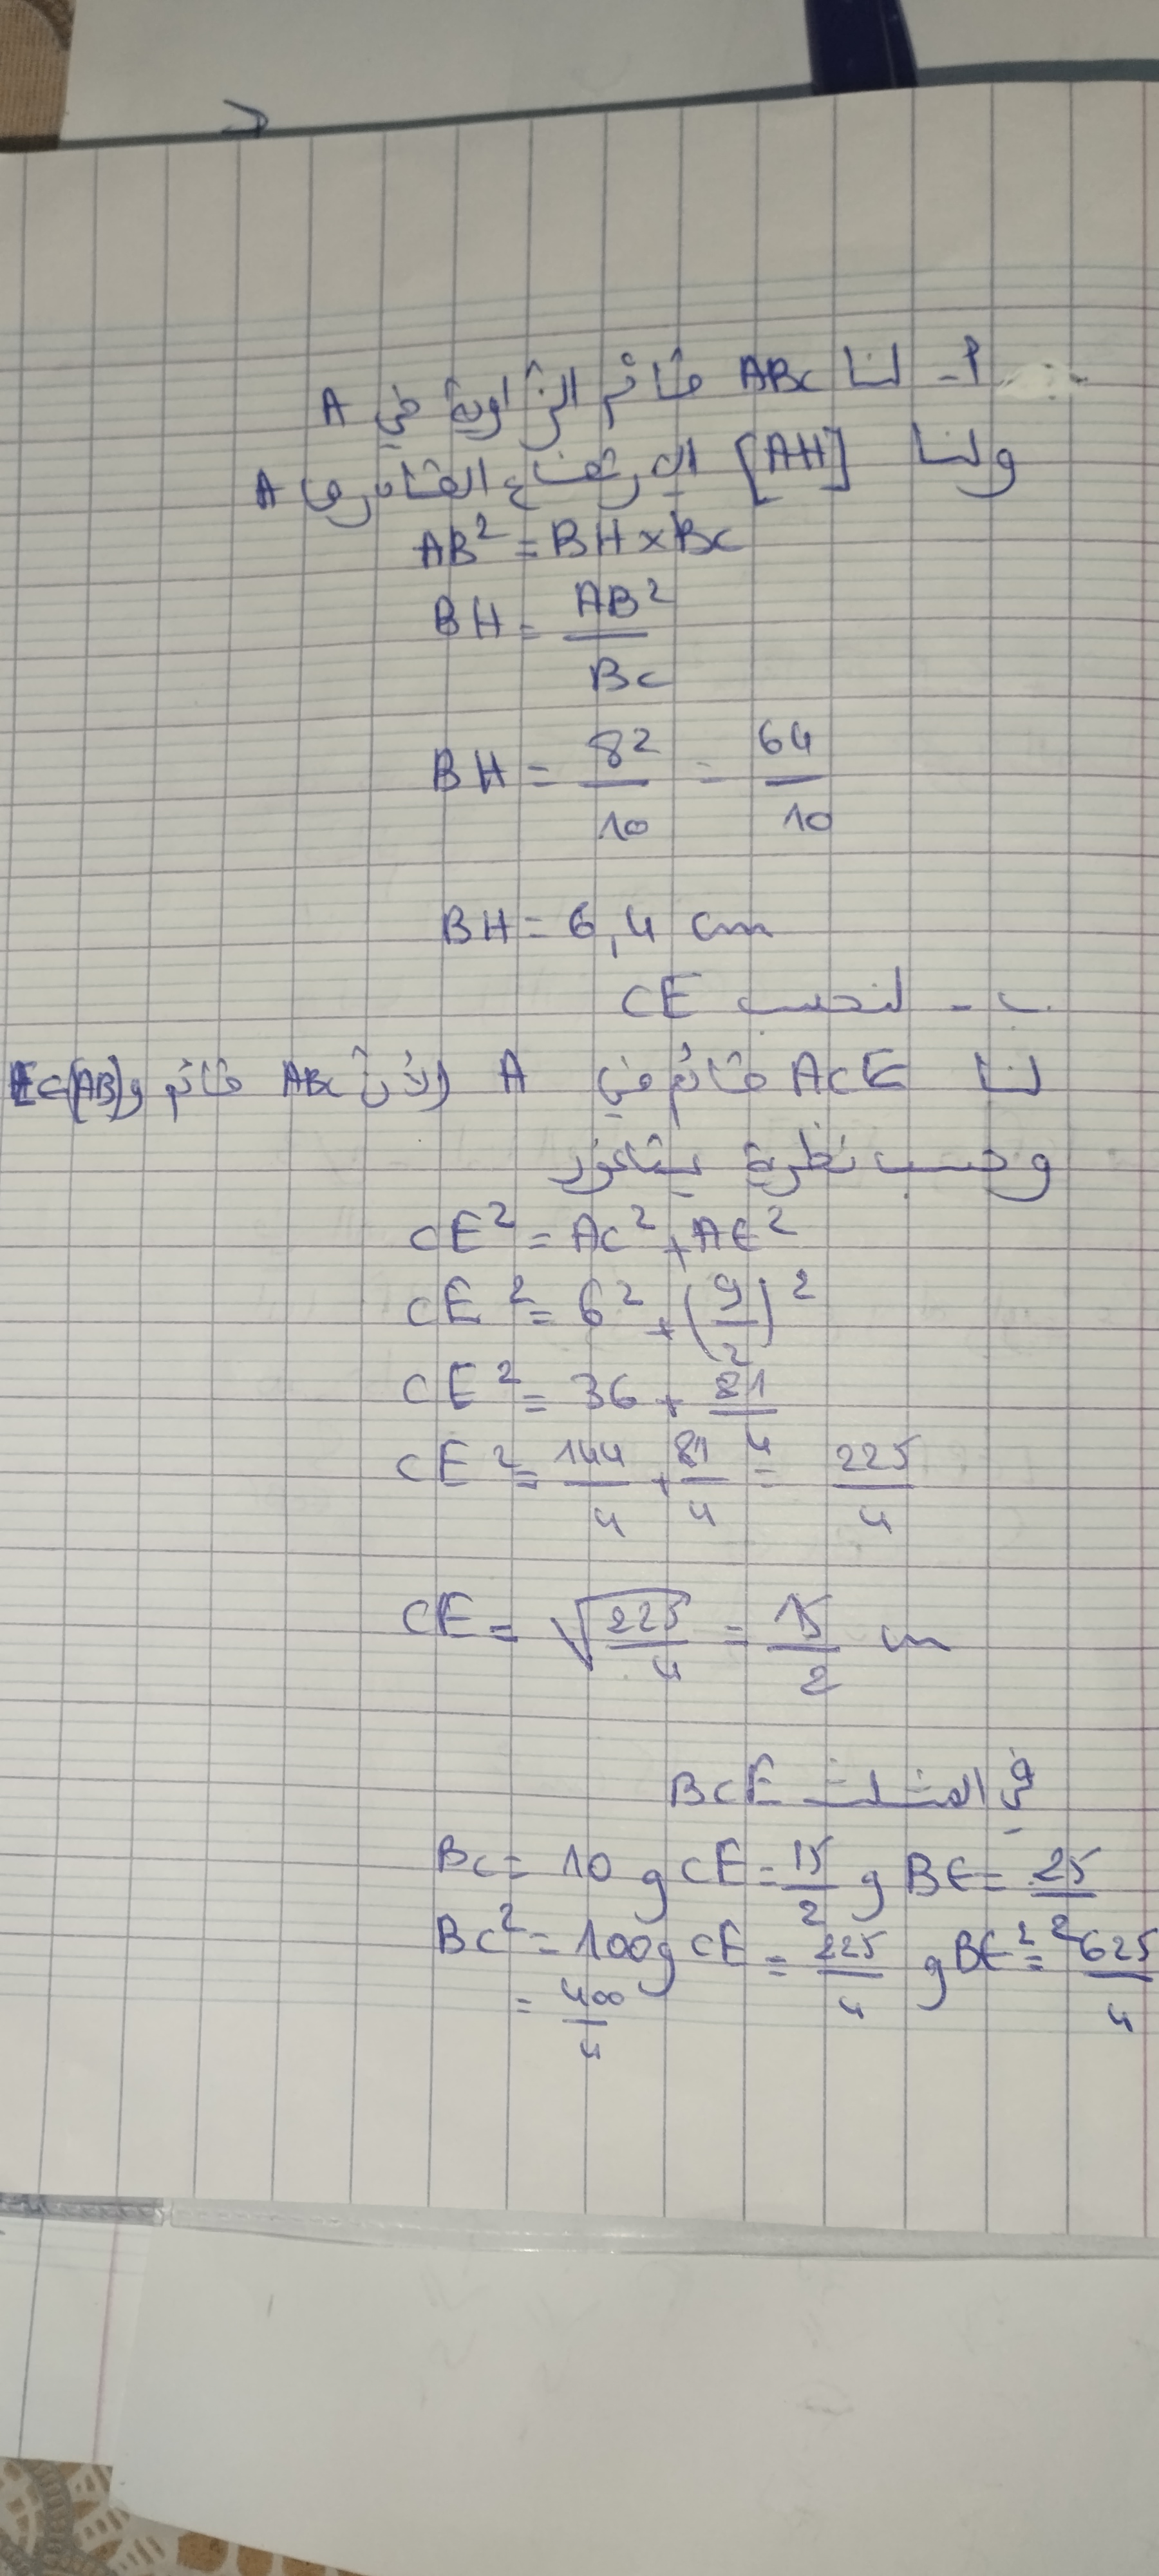 أ - لنا ABC قائم الزاوية في A
ولنا [AH] الارتفاع الصادر من A
AB² = BH × BC
BH = AB² / BC
BH = 8² / 10 = 64 / 10
BH = 6,4 cm
ب - لنحسب CE
لنا ACE قائم في A (لأن ABC قائم و E∈(AB)
وحسب نظرية بيتاغور
CE² = AC² + AE²
CE² = 6² + (9/2)²
CE² = 36 + 81/4
CE² = 144/4 + 81/4 = 225/4
CE = √(225/4) = 15/2 cm
في المثلث BCE
BC = 10 و CE = 15/2 و BE = 25/2
BC² = 100 و CE = 225/4 و BE² = 625/4
= 400/4